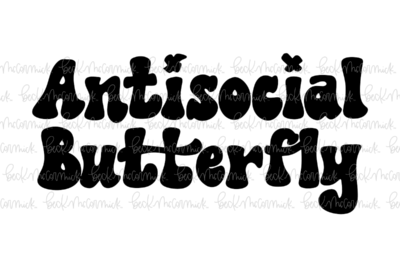 Antisocial
Butterfly